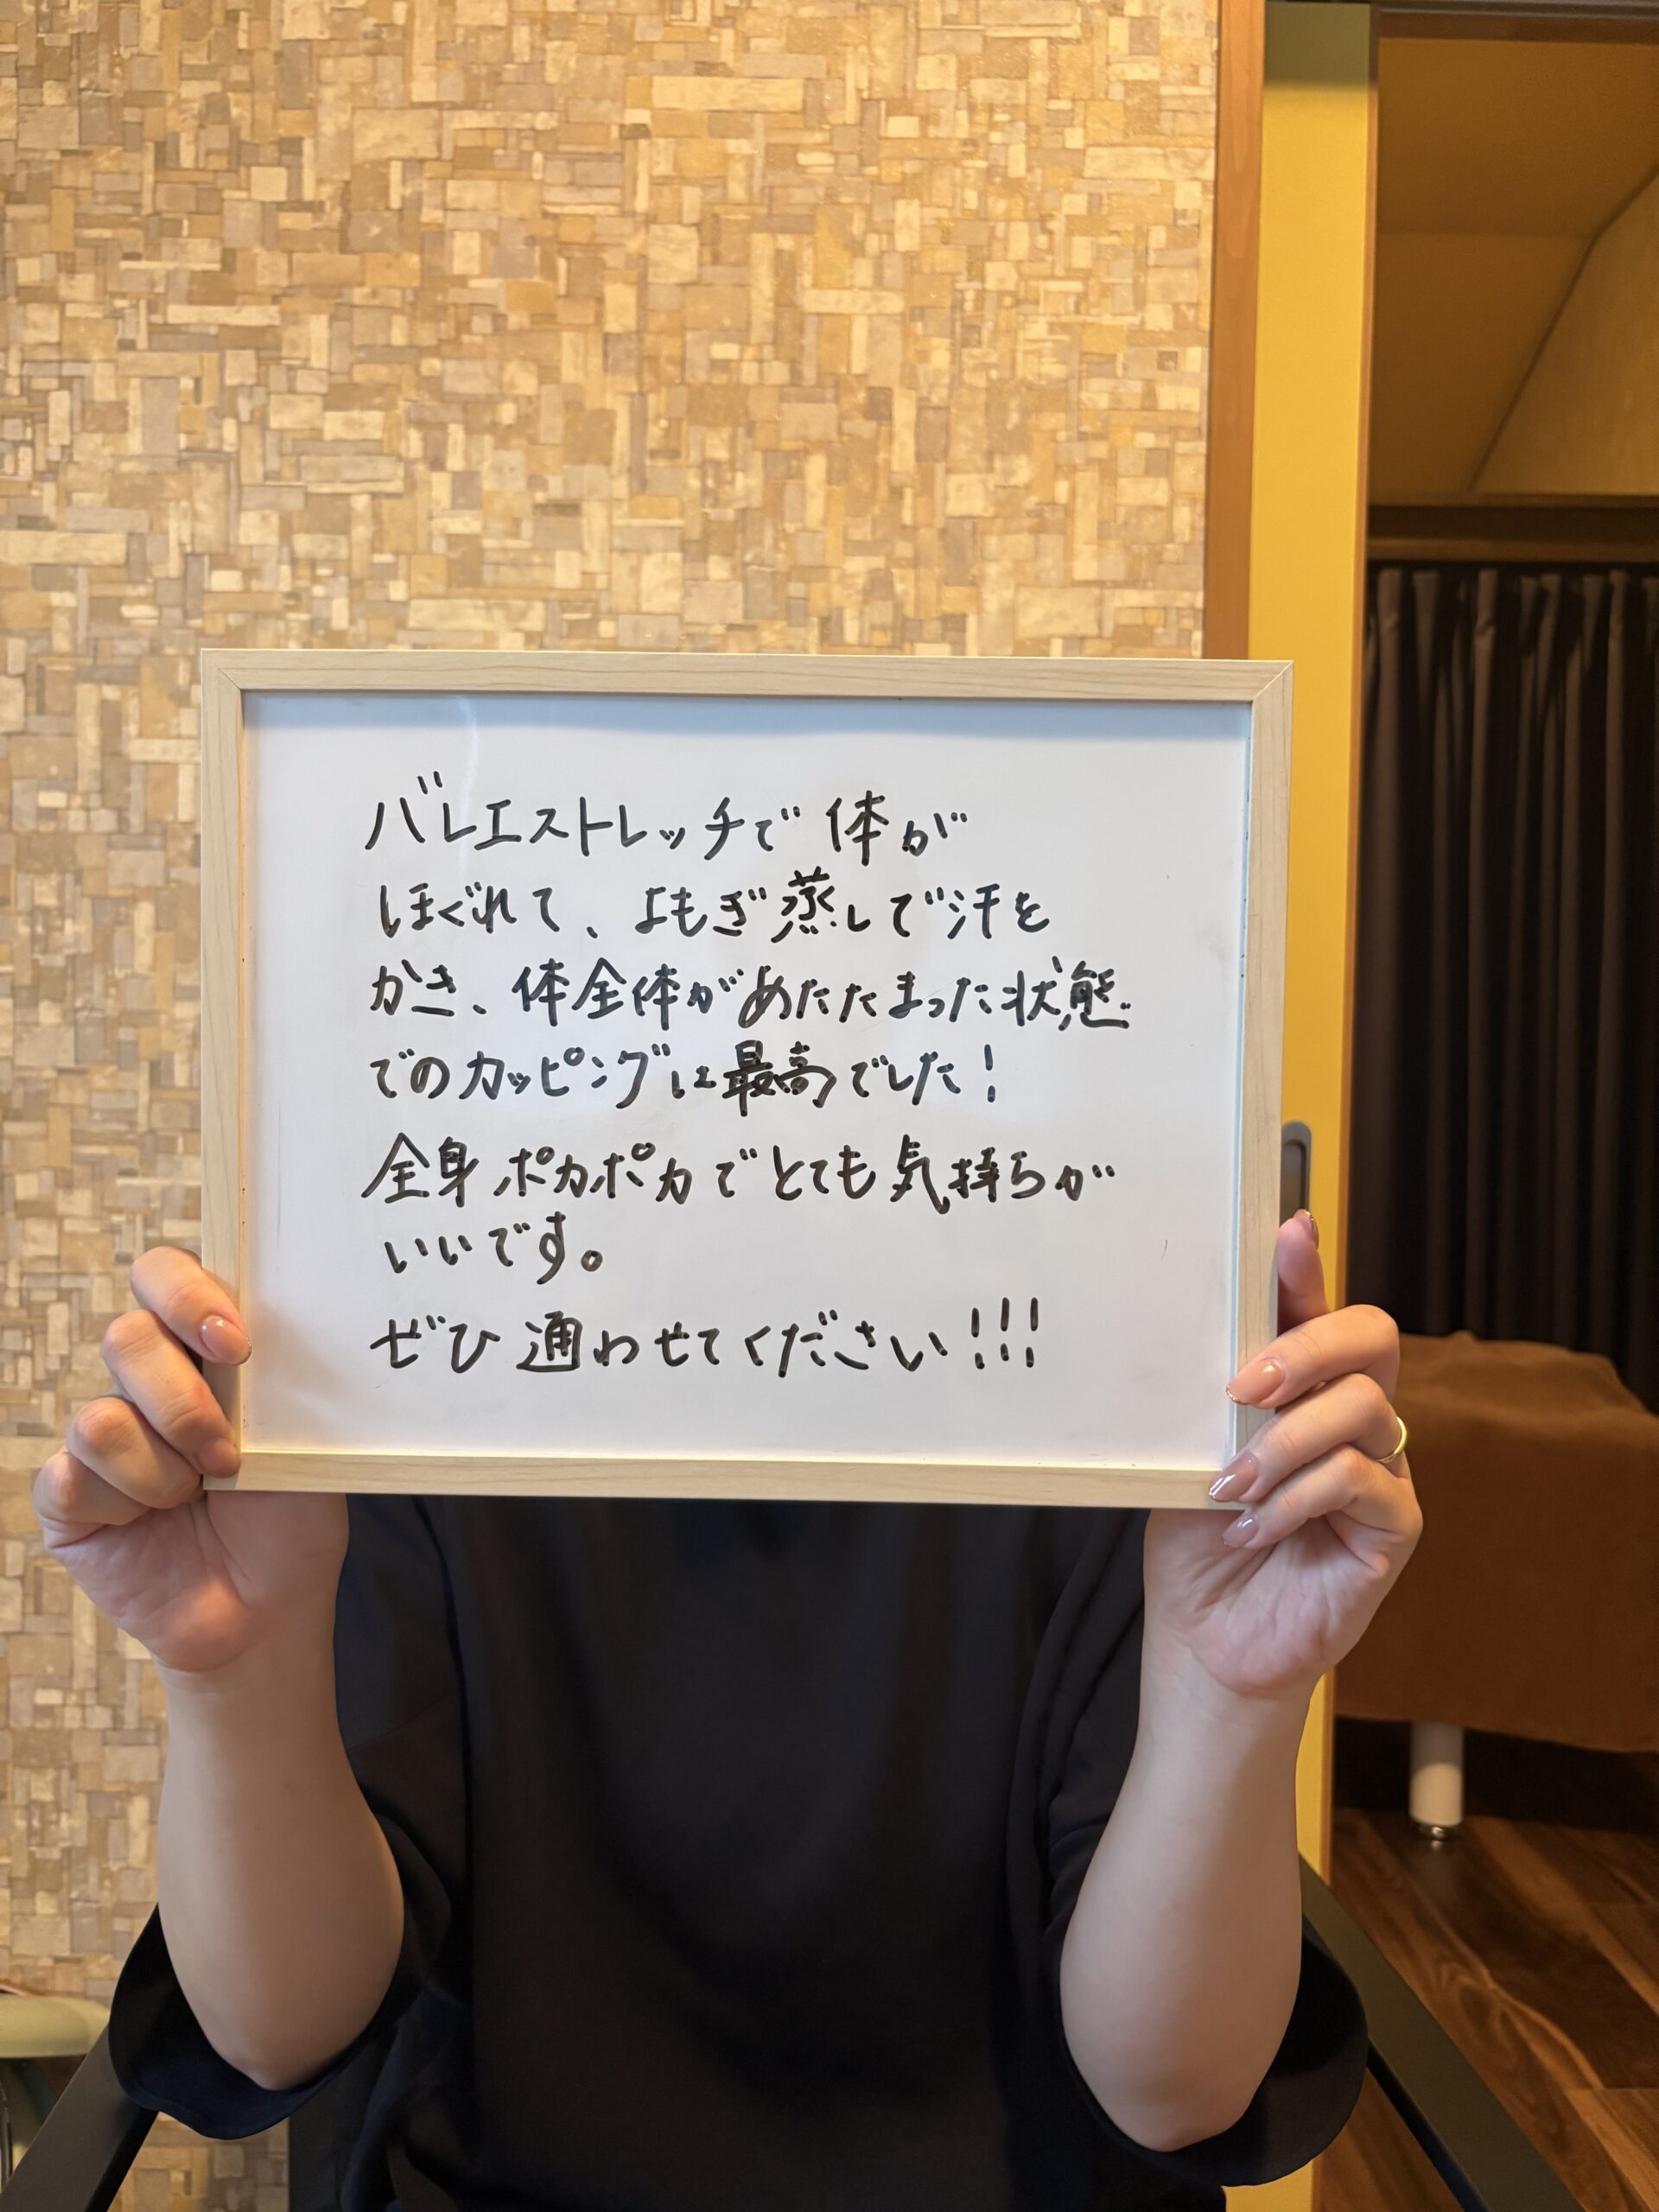 バレエストレッチで 体が
ほぐれて、よもぎ蒸しで汗を
かき、体全体があたたまった状態
でのカッピングは最高でした!
全身ポカポカでとても気持ちが
いいです。
ぜひ通わせてください!!!